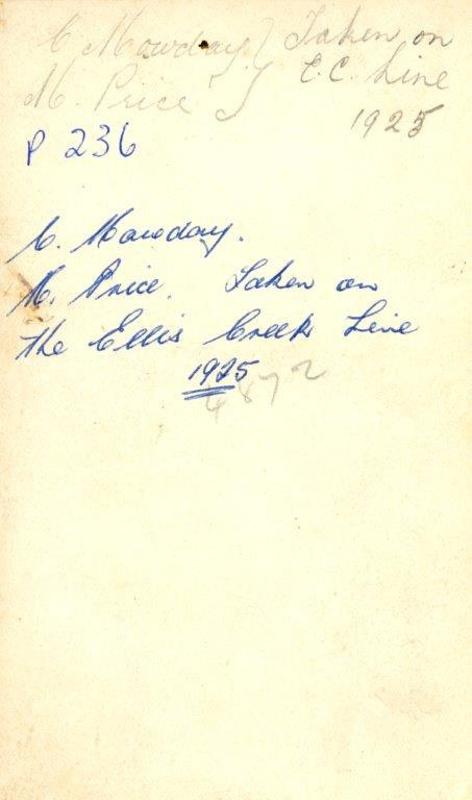 C Mowday } Taken on
M. Price } E.C. Line
1925
P 236
C. Mowday.
M. Price. Taken on
the Ellis Creek Line
1925
4872